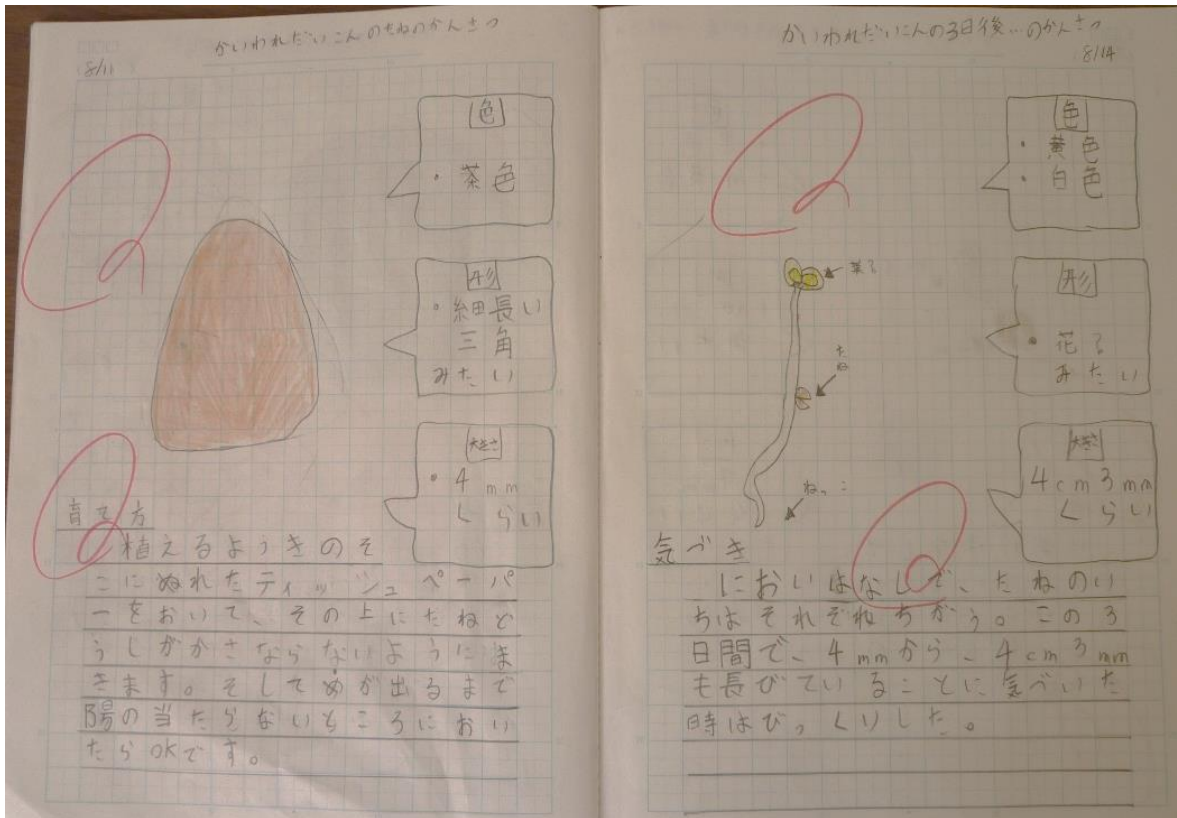 かいわれだいこんのたねのかんさつ
8/11
色
・茶色
形
・細長い
三角
みたい
大きさ
・4mm
くらい
育て方
植えるようきのそ
こにぬれたティッシュペーパ
ーをおいて、その上にたねど
うしがかさならないようにま
きます。そしてめが出るまで
陽の当たらないところにおい
たらOKです。
かいわれだいこんの3日後…のかんさつ
8/14
色
・黄色
・白色
形
・花る
みたい
大きさ
4cm3mm
くらい
葉る
たね
ねっこ
気づき
においはなしで、たねのい
ちはそれぞれちがう。この3
日間で、4mmから、4cm3mm
も長びていることに気づいた
時はびっくりした。